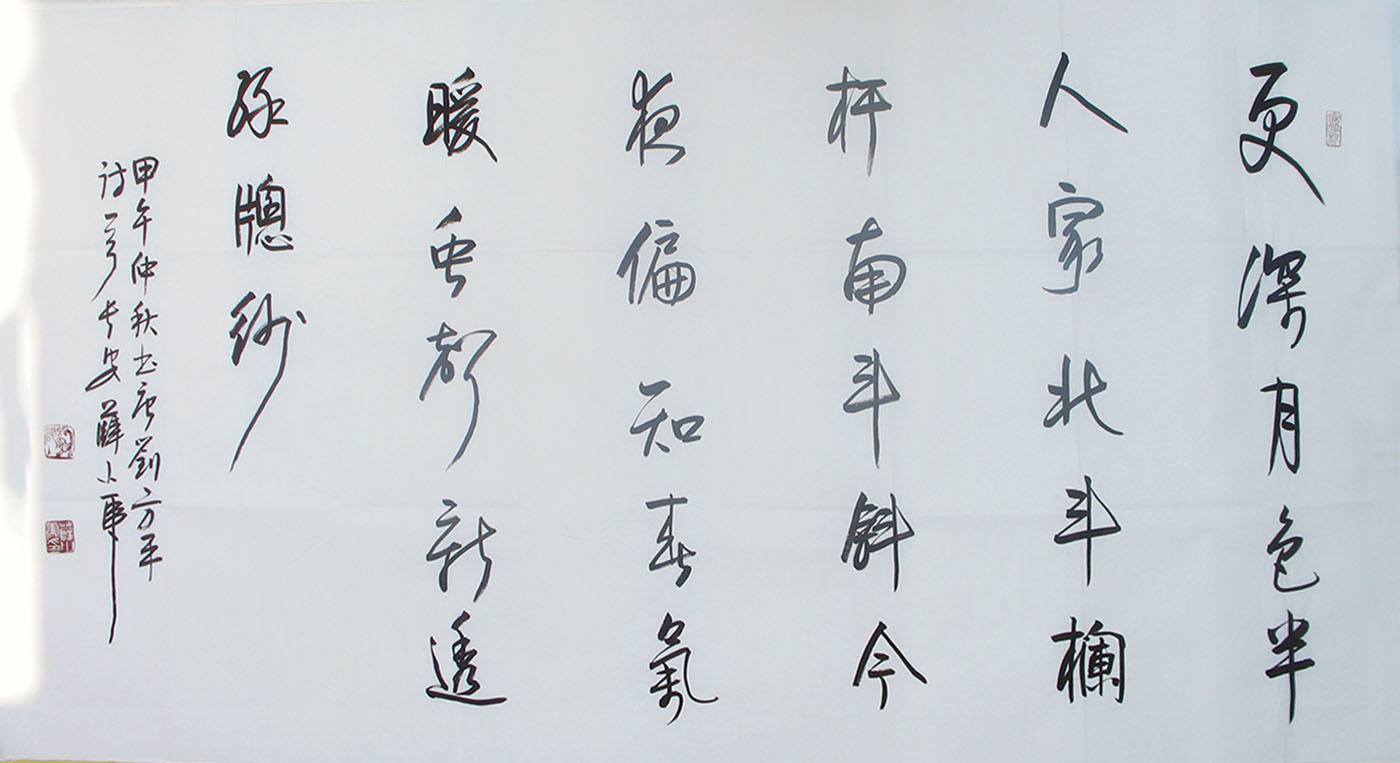 更深月色半
人家北斗欄
杆南斗斜今
夜偏知春氣
暖虫聲新透
綠窗紗
甲午仲秋书唐劉方平
诗一首長安薛小軍